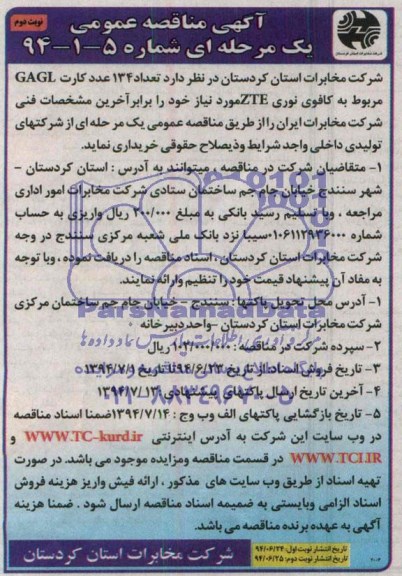 نوبت دوم
آگهی مناقصه عمومی
یک مرحله ای شماره ۵-۱-۹۴
شرکت مخابرات استان کردستان در نظر دارد تعداد۱۳۴ عدد کارت GAGL
مربوط به کافوی نوری ZTEمورد نیاز خود را برابرآخرین مشخصات فنی
شرکت مخابرات ایران را از طریق مناقصه عمومی یک مرحله ای از شرکتهای
تولیدی داخلی واجد شرایط وذیصلاح حقوقی خریداری نماید.
۱- متقاضیان شرکت در مناقصه ، میتوانند به آدرس : استان کردستان -
شهر سنندج خیابان جام جم ساختمان ستادی شرکت مخابرات امور اداری
مراجعه ، وبا تسلیم رسید بانکی به مبلغ ۲۰۰/۰۰۰ ریال واریزی به حساب
شماره ۰۱۰۶۱۱۲۹۳۶۰۰۰سیبا نزد بانک ملی شعبه مرکزی سنندج در وجه
شرکت مخابرات استان کردستان ، اسناد مناقصه را دریافت نموده ، وبا توجه
به مفاد آن پیشنهاد قیمت خود را تنظیم وارائه نمایند.
۱- آدرس محل تحویل پاکتها : سنندج - خیابان جام جم ساختمان مرکزی
شرکت مخابرات استان کردستان -واحد دبیرخانه
۲- سپرده شرکت در مناقصه : ریال
۳- تاریخ فروش اسناد از تاریخ ۹۴/۶/۲۳تا تاریخ ۱۳۹۴/۷/۱
۴- آخرین تاریخ ارسال پاکتهای پیشنهادی ۱۳۹۴/۷/۱۳
۵- تاریخ بازگشایی پاکتهای الف وب وج : ۱۳۹۴/۷/۱۴ضمنا اسناد مناقصه
در وب سایت این شرکت به آدرس اینترنتی WWW.TC-kurd.ir و
WWW.TCI.IR در قسمت مناقصه ومزایده موجود می باشد. در صورت
تهیه اسناد از طریق وب سایت های مذکور ، ارائه فیش واریز هزینه فروش
اسناد الزامی وبایستی به ضمیمه اسناد مناقصه ارسال شود . ضمنا هزینه
آگهی به عهده برنده مناقصه می باشد.
تاریخ انتشار نوبت اول: ۹۴/۰۶/۲۴
تاریخ انتشار نوبت دوم: ۹۴/۰۶/۲۵
شرکت مخابرات استان کردستان
ParsNamadData